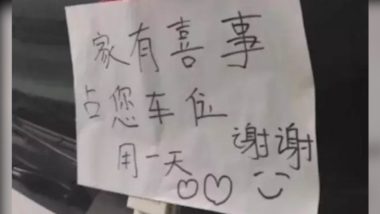 家有喜事
占您车位
用一天 谢谢